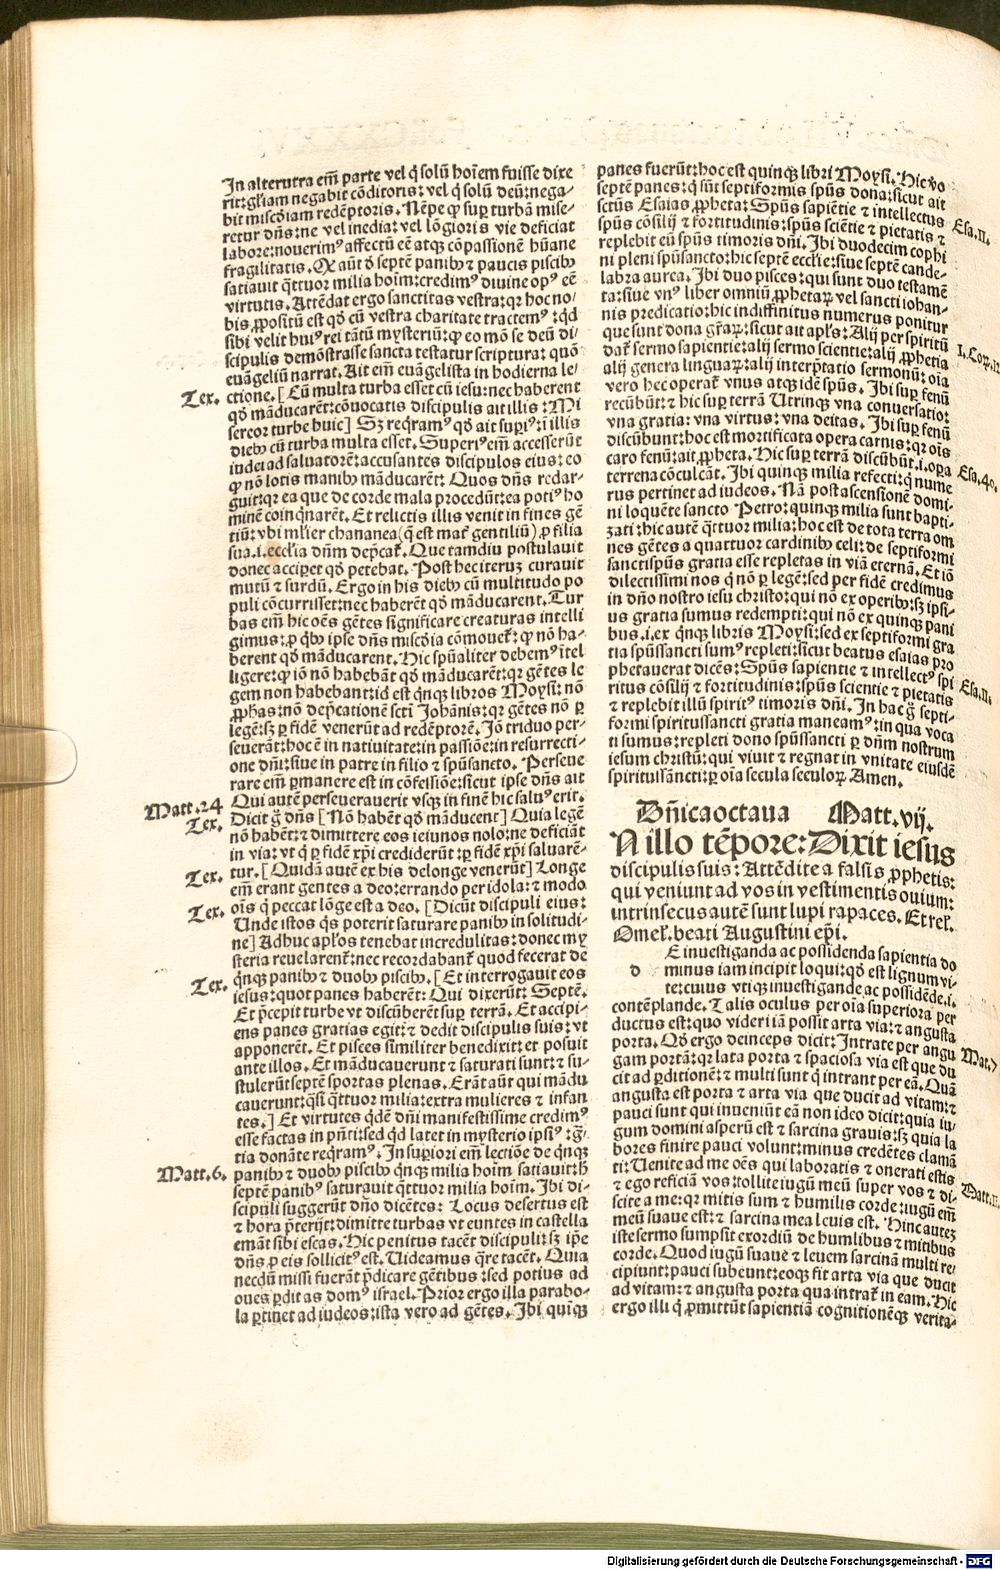 In alterutra em̄ parte vel q̇ solū hoīem fuisse dixe
rit: gl̄iam negabit cōditoris: vel q̇ solū deū: nega-
bit misc̄diam redēptoris. Nēpe ꝙ sup̱ turbā mise-
retur dn̄s: ne vel inedia: vel lōgioris vie deficiat
labore: nouerimꝰ affectū eē atqꝫ cōpassionē hūane
fragilitatis. Qꝫ aūt ō septē panibꝫ et paucis piscibꝫ
satiauit q̇ttuor milia hoīm: credimꝰ diuine opꝰ eē
virtutis. Attēdat ergo sanctitas vestra: qꝛ hoc no-
bis ꝓpositū est qđ cū vestra charitate tractemꝰ: qđ
sibi velit huiꝰ rei tātū mysteriū: ꝙ eo mō se deū di-
scipulis demōstrasse sancta testatur scriptura: quō
euāgeliū narrat. Ait em̄ euāgelista in hodierna le-
Tex. ctione. [Cū multa turba esset cū iesu: nec haberent
qđ māducarēt: cōuocatis discipulis ait illis: Mi
sercor turbe huic] Sꝫ req̇ramꝰ qđ ait sup̱iꝰ: ī illis
diebꝫ cū turba multa esset. Superiꝰ em̄ accesserūt
iudei ad saluatorē: accusantes discipulos eius: eo
ꝙ nō lotis manibꝫ māducarēt. Quos dn̄s redar-
guit: qꝛ ea que de corde mala procedūt: ea potiꝰ ho
minē coinq̇narēt. Et relictis illis venit in fines gē
tiū: vbi ml̓ier chananea (q̇ est mat̓ gentiliū) ꝓ filia
sua .i. eccl̄ia dn̄m dep̄cat̓. Que tamdiu postulauit
donec acciperet qđ petebat. Post hec iterū curauit
mutū et surdū. Ergo in his diebꝫ cū multitudo po
puli cōcurrisset: nec haberēt qđ māducarent. Tur
bas em̄ hic oēs gētes significare creaturas intelli
gimus: ꝓ q̇bꝫ ipse dn̄s misc̄dia cōmouet̓: ꝙ nō ha-
berent qđ māducarent. Hic spūaliter debemꝰ ītel
ligere: ꝙ iō nō habebāt qđ māducarēt: qꝛ gētes le
gem non habebant: id est q̇nqꝫ libros Moysi: nō
ꝓph̄as: nō dep̄cationē sct̄i Ioh̄ānis: qꝛ gētes nō ꝑ
legē: sꝫ ꝑ fidē venerūt ad redēptorē. Iō triduo per-
seuerāt: hoc ē in natiuitate: in passiōe: in resurrecti-
one dn̄i: siue in patre in filio et spūsancto. Perseue
rare em̄ ꝑmanere est in cōfessiōe: sicut ipse dn̄s ait
Matt. 24 Qui autē perseuerauerit vsqꝫ in finē hic saluꝰ erit.
Tex. Dicit ḡ dn̄s [Nō habēt qđ māducent] Quia legē
nō habēt: et dimittere eos ieiunos nolo: ne deficiāt
in via: vt q̇ ꝑ fidē xp̄i crediderūt: ꝑ fidē xp̄i saluarē-
Tex. tur. [Quidā autē ex his delonge venerūt] Longe
em̄ erant gentes a deo: errando per idola: et modo
Tex. oīs q̇ peccat lōge est a deo. [Dicūt discipuli eius:
Unde istos q̇s poterit saturare panibꝫ in solitudi-
ne] Adhuc apl̄os tenebat incredulitas: donec my
steria reuelarent̓: nec recordabant̓ quod fecerat de
Tex. q̇nqꝫ panibꝫ et duobꝫ piscibꝫ. [Et interrogauit eos
iesus: quot panes haberēt: Qui dixerūt: Septē.
Et p̄cepit turbe vt discūberēt sup̱ terrā. Et accipi-
ens panes gratias egit: et dedit discipulis suis: vt
apponerēt. Et pisces similiter benedixit: et posuit
ante illos. Et māducauerunt et saturati sunt: et su-
stulerūt septē sportas plenas. Erāt aūt qui mādu
cauerunt: q̇si q̇ttuor milia: extra mulieres et infan
tes.] Et virtutes q̇dē dn̄i manifestissime credimꝰ
esse factas in pn̄ti: sed qđ latet in mysterio ipsiꝰ: gr̄a
tia donāte req̇ramꝰ. In sup̱iori em̄ lectiōe de q̇nqꝫ
Matt. 6. panibꝫ et duobꝫ piscibꝫ q̇nqꝫ milia hoīm satiauit: h̄
septē panibꝰ saturauit q̇ttuor milia hoīm. Ibi di-
scipuli suggerūt dn̄o dicētes: Locus desertus est
et hora p̄terijt: dimitte turbas vt euntes in castella
emāt sibi escas. Hic penitus tacēt discipuli: sꝫ ip̄e
dn̄s ꝓ eis sollicitꝰ est. Uideamus q̇re tacēt. Quia
necdū missi fuerāt p̄dicare gētibus: sed potius ad
oues ꝑditas domꝰ israel. Prior ergo illa parabo-
la ꝑtinet ad iudeos: ista vero ad gētes. Ibi quīqꝫ
panes fuerūt: hoc est quinqꝫ libri Moysi. Hic v̊o
septē panes: q̇ sūt septiformis spūs dona: sicut ait
Esa. II. sctūs Esaias ꝓpheta: Spūs sapiētie et intellectus
spūs cōsilij et fortitudinis: spūs sciētie et pietatis et
replebit eū spūs timoris dn̄i. Ibi duodecim cophi
ni pleni spūsancto: hic septē eccl̄ie: siue septē cande-
labra aurea. Ibi duo pisces: qui sunt duo testamē
ta: siue vnꝰ liber omniū ꝓphetaꝝ vel sancti iohan-
nis predicatio: hic indiffinitus numerus ponitur
que sunt dona gr̄aꝝ: sicut ait apl̄s: Alij per spiritū
I. Cor. 12 dat̓ sermo sapientie: alij sermo scientie: alij ꝓphetia
alij genera linguaꝝ: alij interp̄tatio sermonū: oīa
vero hec operat̓ vnus atqꝫ idē spūs. Ibi sup̱ fenū
recūbūt: et hic sup̱ terrā Utrinqꝫ vna conuersatio:
vna gratia: vna virtus: vna deitas. Ibi sup̱ fenū
discūbunt: hoc est mortificata opera carnis: qꝛ oīs
caro fenū: ait ꝓpheta. Hic sup̱ terrā discūbūt .i. oꝑa
Esa. 40. terrena cōculcāt. Ibi quinqꝫ milia refecti: q̇ nume
rus pertinet ad iudeos. Nā post ascensionē domi-
ni loquēte sancto Petro: quinqꝫ milia sunt bapti-
zati: hic autē q̇ttuor milia: hoc est de tota terra om
nes gētes a quattuor cardinibꝫ celi: de septiformi
sanctispūs gratia esse repletas in viā eternā. Et iō
dilectissimi nos q̇ nō ꝑ legē: sed per fidē credimus
in dn̄o nostro iesu christo: qui nō ex operibꝫ: sꝫ ipsi-
us gratia sumus redempti: qui nō ex quinqꝫ pani
bus .i. ex q̇nqꝫ libris Moysi: sed ex septiformi gra
tia spūssancti sumꝰ repleti: sicut beatus esaias pro
phetauerat dicēs: Spūs sapientie et intellectꝰ spi
Esa. II. ritus cōsilij et fortitudinis: spūs scientie et pietatis
et replebit illū spiritꝰ timoris dn̄i. In hac ḡ septi-
formi spiritussancti gratia maneamꝰ: in qua voca
ti sumus: repleti dono spūssancti ꝑ dn̄m nostrum
iesum christū: qui viuit et regnat in vnitate eiusdē
spiritussācti: ꝑ oīa secula seculoꝝ Amen.
Dn̄ica octaua Matt. vij.
IN illo tēpore: Dixit iesus
discipulis suis: Attēdite a falsis ꝓphetis:
qui veniunt ad vos in vestimentis ouium:
intrinsecus autē sunt lupi rapaces. Et rel.
Omel. beati Augustini ep̄i.
d E inuestiganda ac possidenda sapientia do
minus iam incipit loqui: qđ est lignum vi-
te: cuius vtiqꝫ inuestigande ac possidēde .i.
contēplande. Talis oculus per oīa superiora per
ductus est: quo videri iā possit arta via: et angusta
porta. Qđ ergo deinceps dicit: Intrate per angu
Mat. 7 gam portā: qꝛ lata porta et spaciosa via est que du
cit ad ꝑditionē: et multi sunt q̇ intrant per eā. Quā
angusta est porta et arta via que ducit ad vitam: et
pauci sunt qui inueniūt eā non ideo dicit: quia iu-
gum domini asperū est et sarcina grauis: sꝫ quia la
bores finire pauci volunt: minus credētes clamā
ti: Uenite ad me oēs qui laboratis et onerati estis
Matt. II. et ego reficiā vos: tollite iugū meū super vos et di-
scite a me: qꝛ mitis sum et humilis corde: iugū em̄
meū suaue est: et sarcina mea leuis est. Hinc autē
iste sermo sumpsit exordiū de humlibus et mitibus
corde. Quod iugū suaue et leuem sarcinā multi re/
cipiunt: pauci subeunt: eoqꝫ fit arta via que ducit
ad vitam: et angusta porta qua intrat̓ in eam. Hic
ergo illi q̇ ꝓmittūt sapientiā cognitionēqꝫ verita-
Digitalisierung gefördert durch die Deutsche Forschungsgemeinschaft - DFG